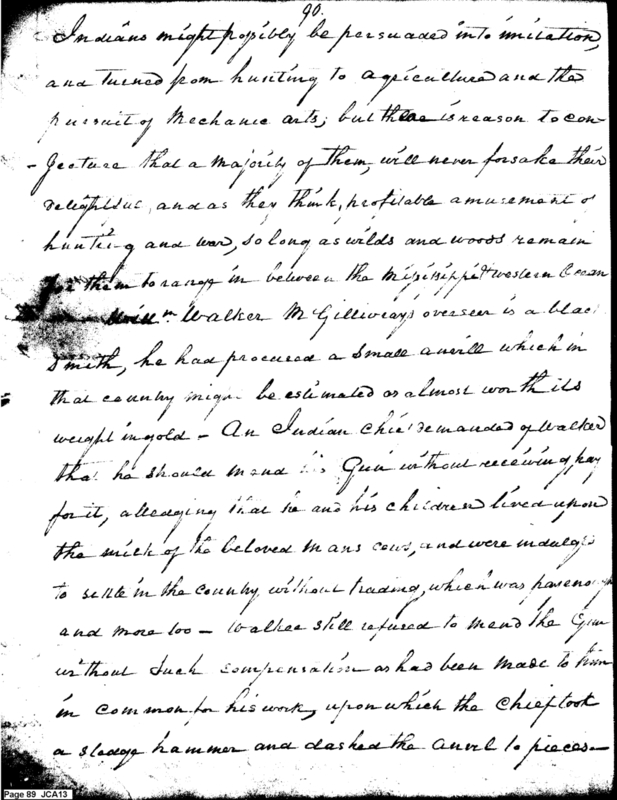 90.
Indians might possibly be persuaded into imitation,
and turned from hunting to agriculture and the
pursuit of Mechanic arts; but there is reason to con-
- jecture that a majority of them, will never forsake their
delightful, and as they think, profitable amusement of
hunting and war, so long as wilds and woods remain
for them to range in between the Missisippi & western Ocean
Willm Walker McGillivray's overseer is a black
Smith, he had procured a small anvill which in
that country might be estimated as almost worth its
weight in gold - An Indian chief demanded of Walker
that he should mend his Gun without receiving pay
for it, alledging that he and his children lived upon
the milk of the beloved mans cows, and were indulged
to settle in the country without trading, which was pay enough
and more too - Walker still refused to mend the Gun
without such compensation as had been made to him
in common for his work, upon which the chief took
a sledge hammer and dashed the anvil to pieces -
Page 89 JCA13